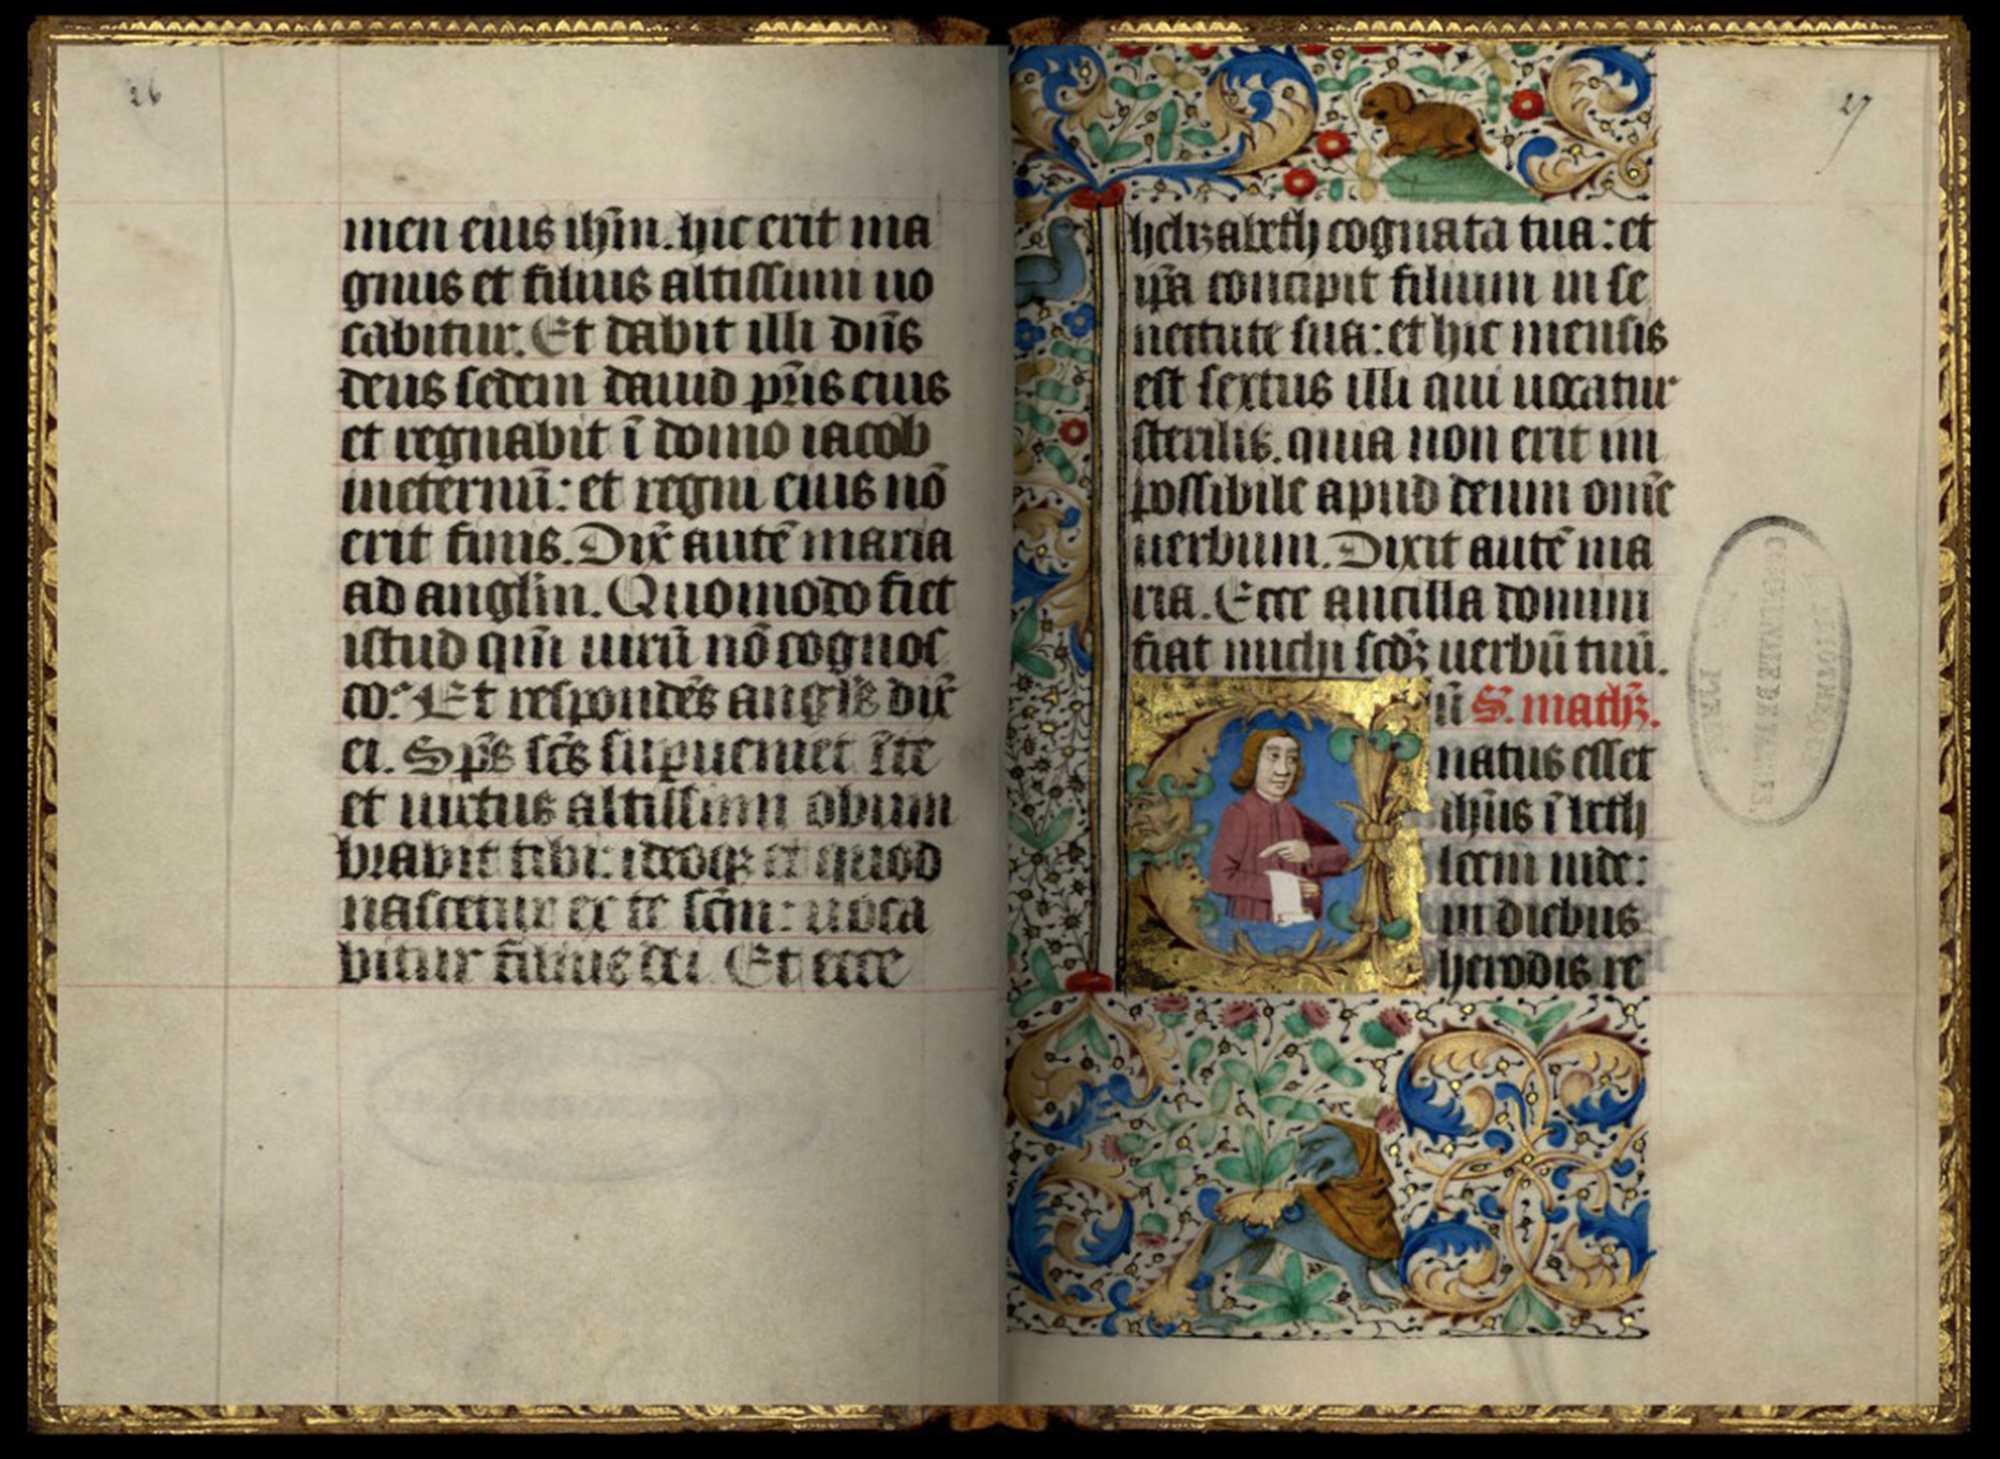 26
men eius ihm̄. hic erit ma
gnus et filius altissimi uo
cabitur. Et dabit illi dn̄s
deus sedem dauid pr̄is eius
et regnabit ī domo iacob
ineternū: et regni eius nō
erit finis. Dix̄ autē maria
ad anglm̄. Quomodo fiet
istud qm̄ uirū nō cognos
co. Et respondēs angl's dix̄
ei. Sp̄s sc̄s supueniet ī te
et uirtus altissimi obum
brabit tibi: ideoqꝫ et quod
nascetur ex te scm̄: uoca
bitur filius dei. Et ecce
27
helizabeth cognata tua: et
ip̄a concipit filium in se
nectute sua: et hic mensis
est sextus illi qui uocatur
sterilis. quia non erit im
possibile apud deum om̄e
uerbum. Dixit autē ma
ria. Ecce ancilla domini
fiat michi scd̄ꝫ uerbū tuū.
C ū S. mathꝫ.
natus esset
ihūs ī beth
leem iude:
in diebus
herodis re